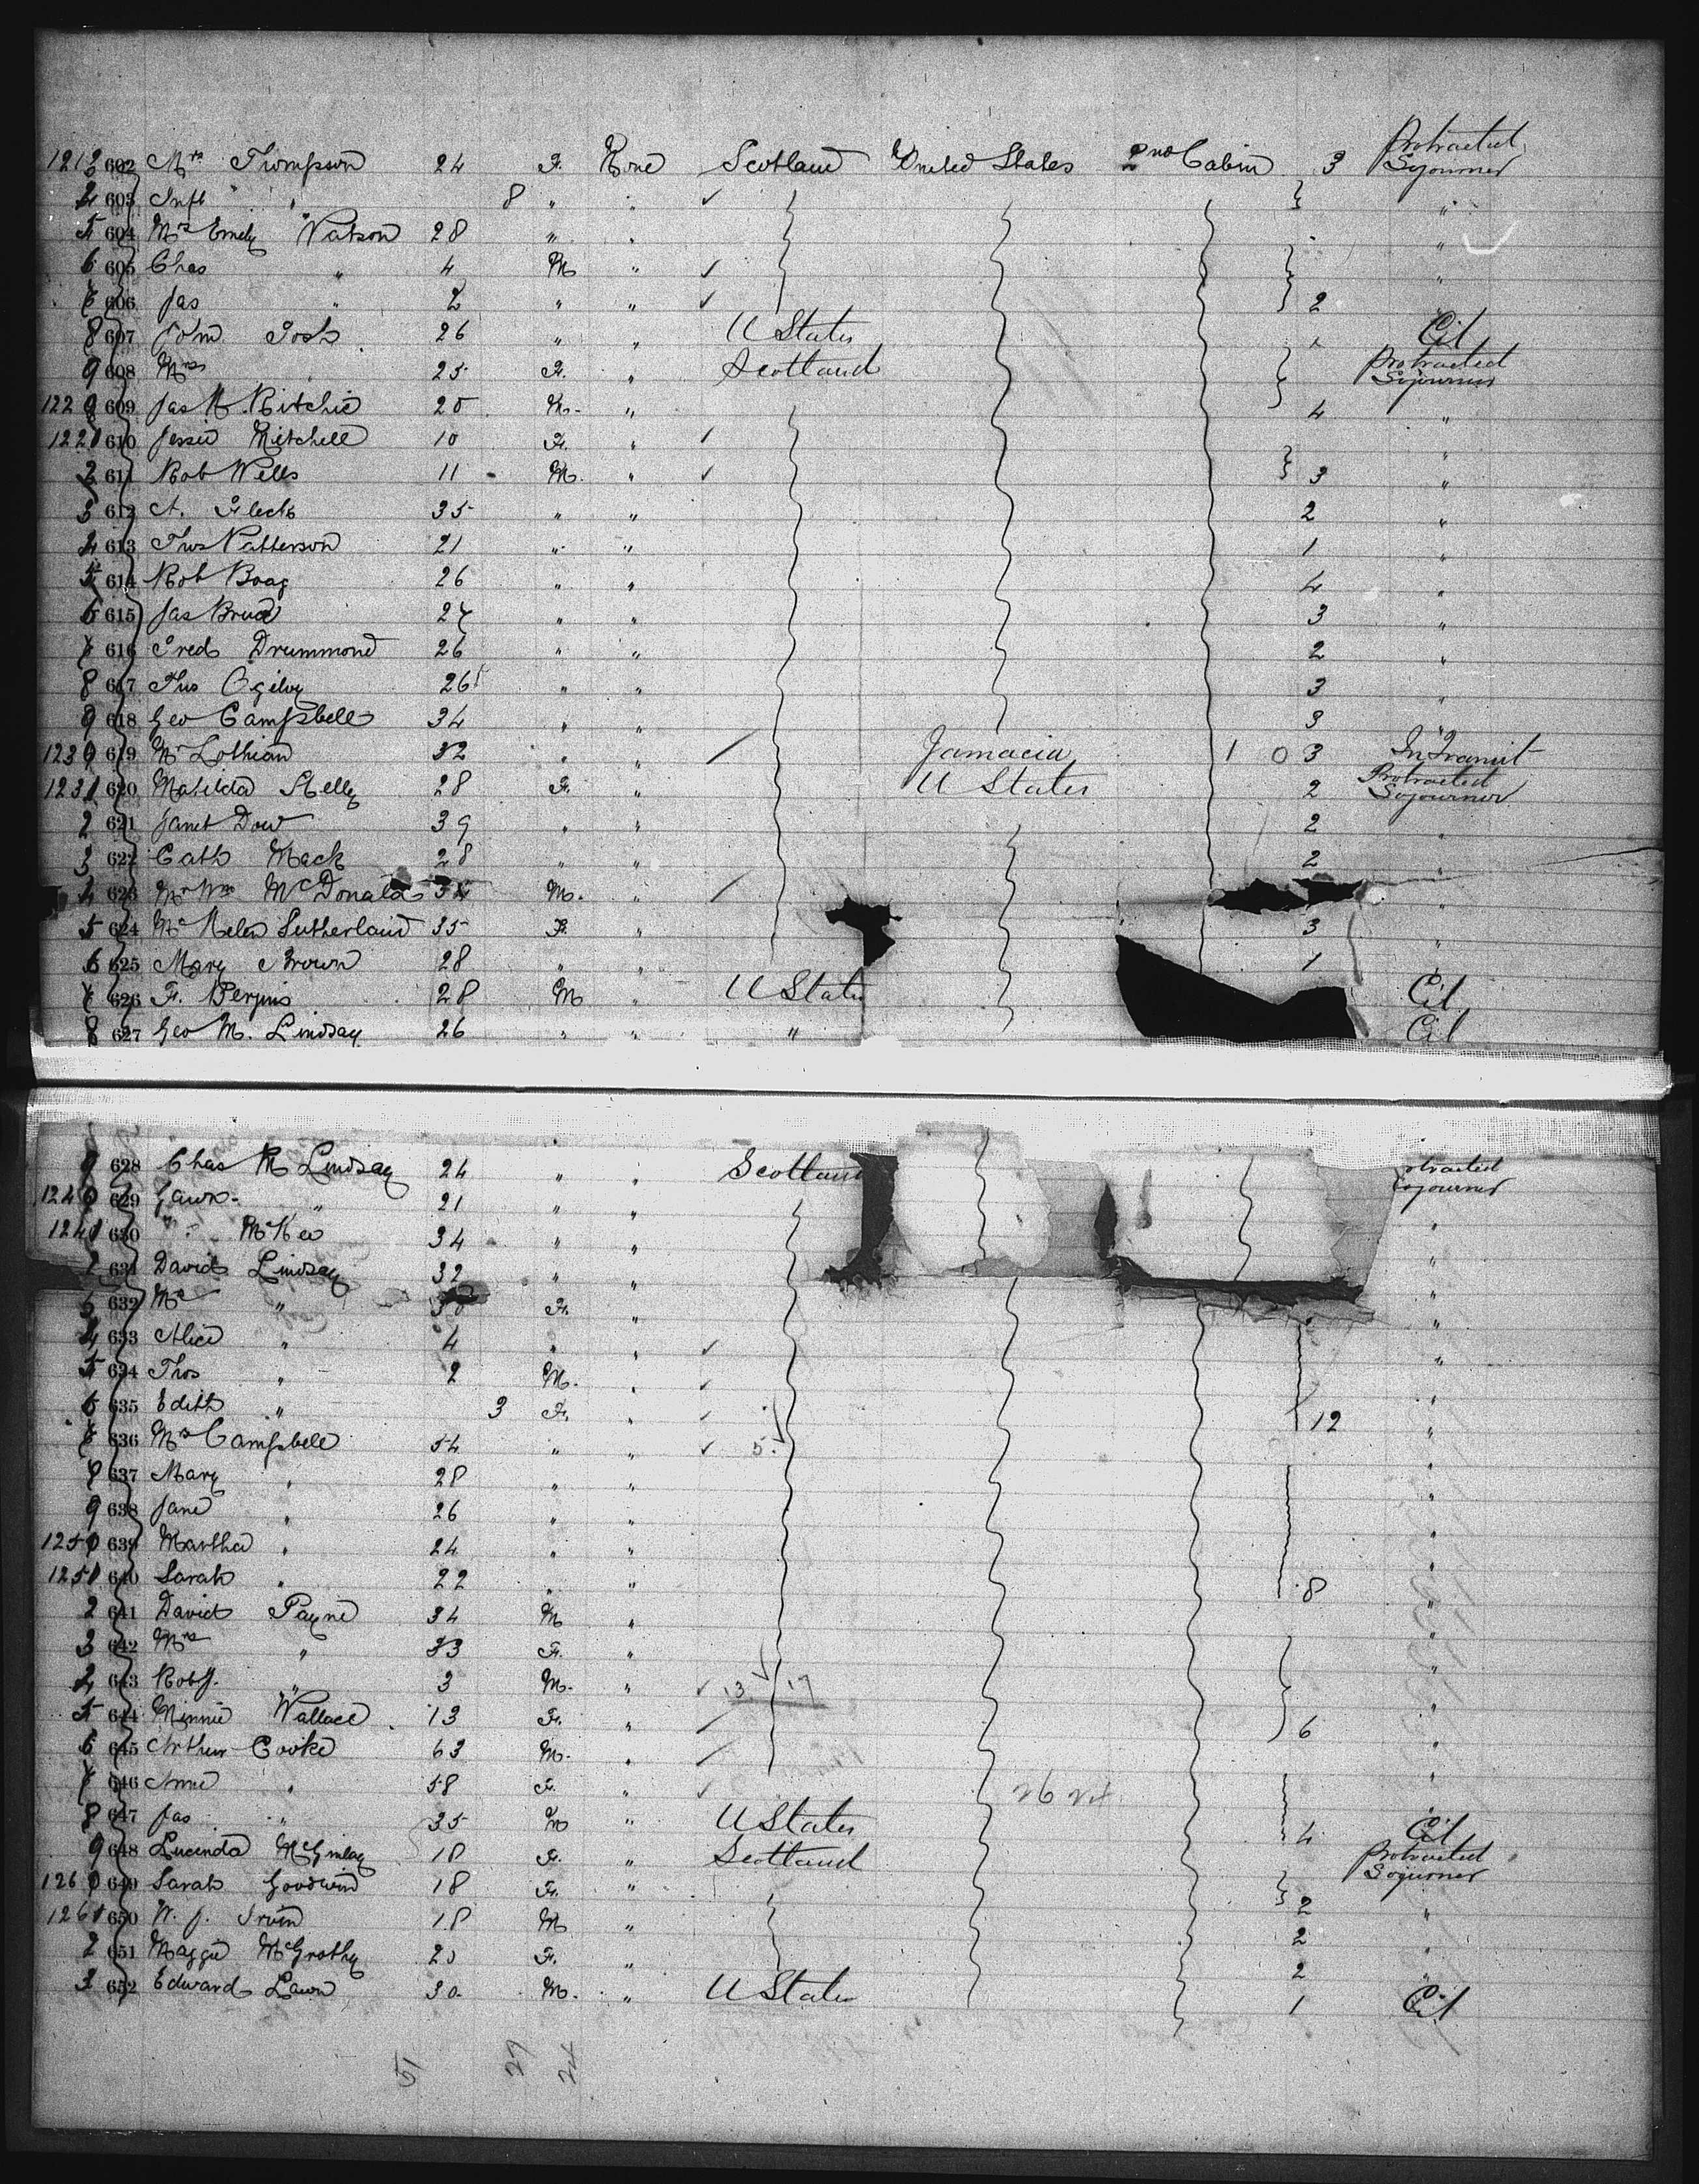 1213 602 Mrs Thompson 24 F. None Scotland United States 2nd Cabin 3 Protracted Sojourner
4 603 Inft " 8 " " ✓ "
5 604 Mrs Emely Watson 28 " " "
6 605 Chas " 4 M " ✓ "
7 606 Jas " 2 " " ✓ 2
8 607 John Tosh 26 " " U States " Cit
9 608 Mrs " 25 F. " Scotland Protracted Sojourner
1220 609 Jas M. Ritchie 20 M. " 4 "
1221 610 Jessie Mitchell 10 F. " ✓ "
2 611 Rob Wells 11 M. " ✓ 3 "
3 612 A. Fleck 35 " " 2 "
4 613 Thos Patterson 21 " " 1 "
5 614 Rob Boag 26 " " 4 "
6 615 Jas Bruce 27 " " 3 "
7 616 Fred Drummond 26 " " 2 "
8 617 Thos Ogilvy 26 " " 3 "
9 618 Geo Campbell 34 " " 3 "
1230 619 Mr Lothian 32 " " Jamacia 1 0 3 In Transit
1231 620 Matilda Kelly 28 F. " U States 2 Protracted Sojourner
2 621 Janet Dow 39 " " 2 "
3 622 Cath Mack 28 " " 2 "
4 623 Mr Wm McDonald M. " "
5 624 Helen Sutherland 35 F. " 3 "
6 625 Mary Brown 28 " " 1 "
7 626 F. 28 M " U States Cit
8 627 Geo M. Lindsay 26 " " " Cit
9 628 Chas M Lindsay 24 " " Scotland otracted Sojourner
1240 629 Gawn " 21 " " "
1241 630 McKee 34 " " "
2 631 David Lindsay 32 " " "
3 632 Mrs " 30 F. " "
4 633 Alice " 4 " " ✓ "
5 634 Thos " 2 M. " ✓ "
6 635 Edith " 3 F. " ✓ 12 "
7 636 Mrs Campbell 54 " " ✓ 5 ✓ "
8 637 Mary " 28 " " "
9 638 Jane " 26 " " "
1250 639 Martha " 24 " " "
1251 640 Sarah " 22 " " 8 "
2 641 David Payne 34 M " "
3 642 Mrs " 33 F. " "
4 643 Robt. " 3 M. " ✓ 13 ✓ 17 "
5 644 Minnie Wallace 13 F. " 6 "
6 645 Arthur Cooke 63 M. " "
7 646 Annie " 58 F. " ✓ 26 24 "
8 647 Jas " 35 M " U States 4 Cit
9 648 Lucinda McGinlay 18 F. " Scotland Protracted Sojourner
1260 649 Sarah Goodwin 18 F. " 2 "
1261 650 W. J. Irvin 18 M " 2 "
2 651 Maggie McGrothy 20 F. " 2 "
3 652 Edward Lawn 30 M. " U States 1 Cit
51 27 24